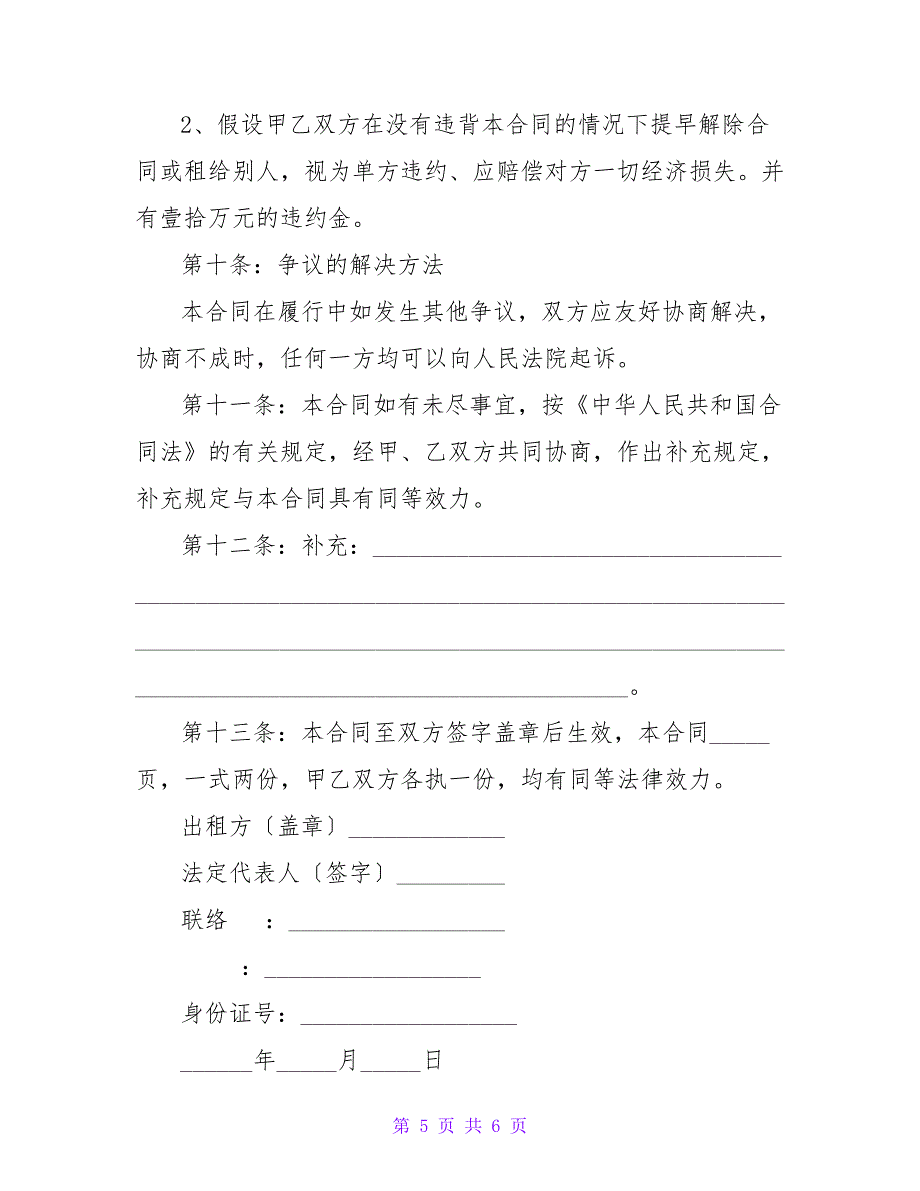 2、假设甲乙双方在没有违背本合同的情况下提早解除合
同或租给别人，视为单方违约、应赔偿对方一切经济损失。并
有壹拾万元的违约金。
第十条：争议的解决方法
本合同在履行中如发生其他争议，双方应友好协商解决，
协商不成时，任何一方均可以向人民法院起诉。
第十一条：本合同如有未尽事宜，按《中华人民共和国合
同法》的有关规定，经甲、乙双方共同协商，作出补充规定，
补充规定与本合同具有同等效力。
第十二条：补充：__________________________________
______________________________________________________
______________________________________________________
_________________________________________。
第十三条：本合同至双方签字盖章后生效，本合同_____
页，一式两份，甲乙双方各执一份，均有同等法律效力。
出租方〔盖章〕_____________
法定代表人〔签字〕_________
联络 ：__________________
：__________________
身份证号：__________________
______年_____月_____日
第 5 页 共 6 页